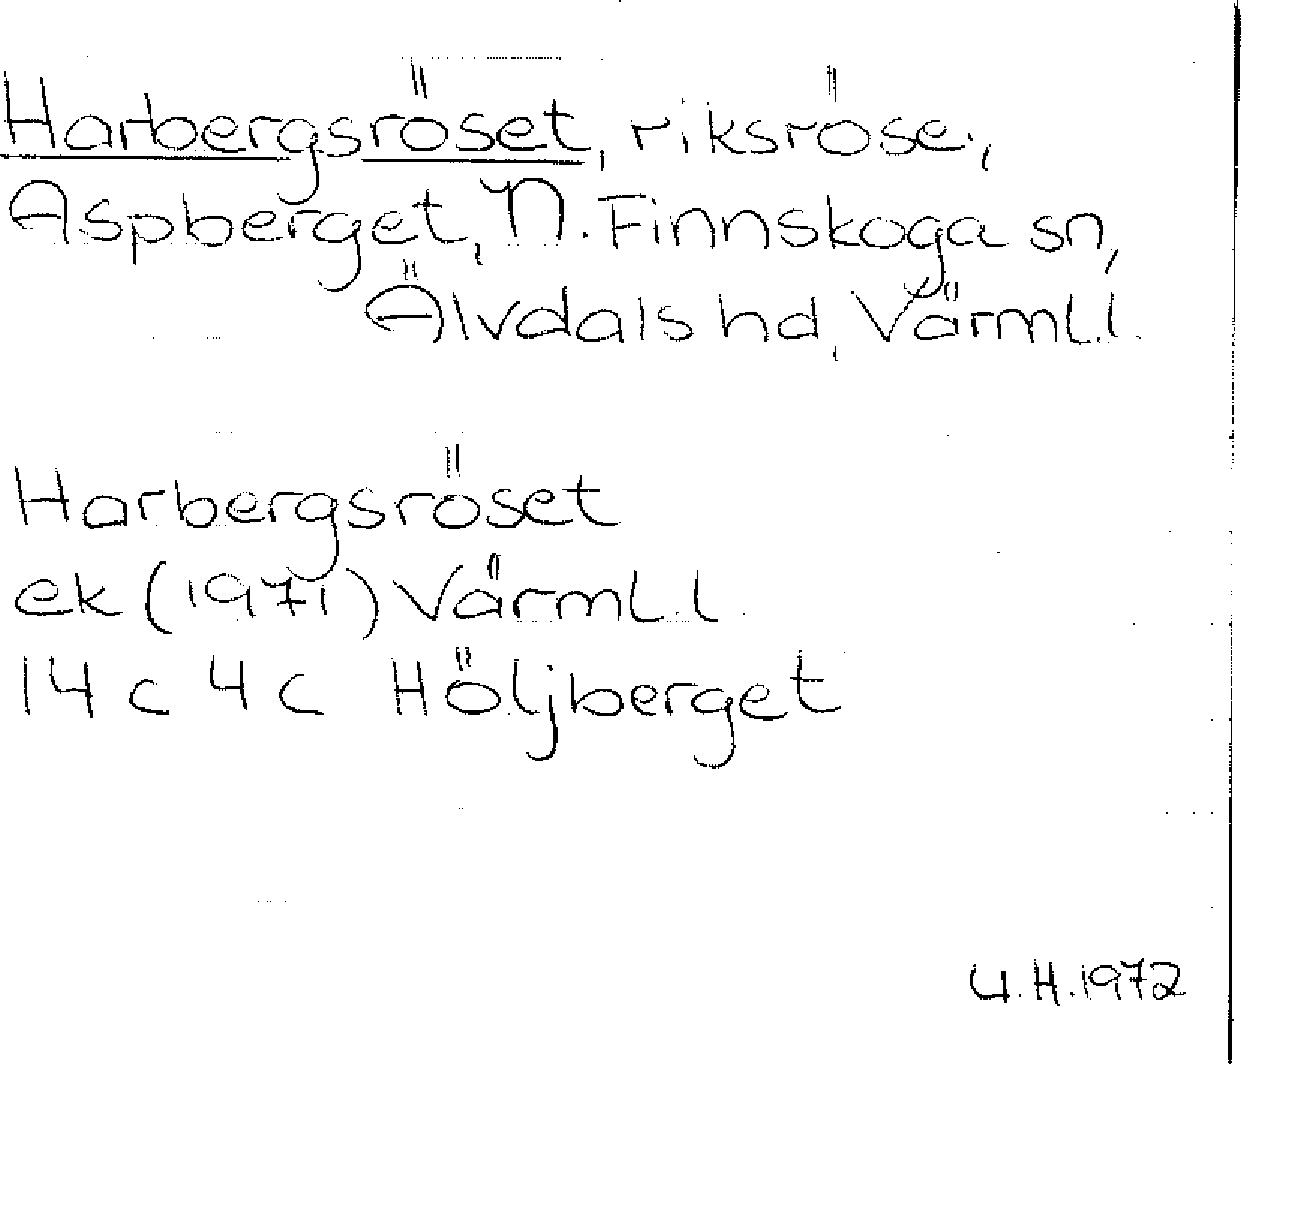 Harbergsröset, riksröse,
Aspberget, N. Finnskoga sn,
Älvdals hd, Värml. l.
Harbergsröset
ek (1971) Värml. l.
14 c 4 c Höljberget
U.H.1972